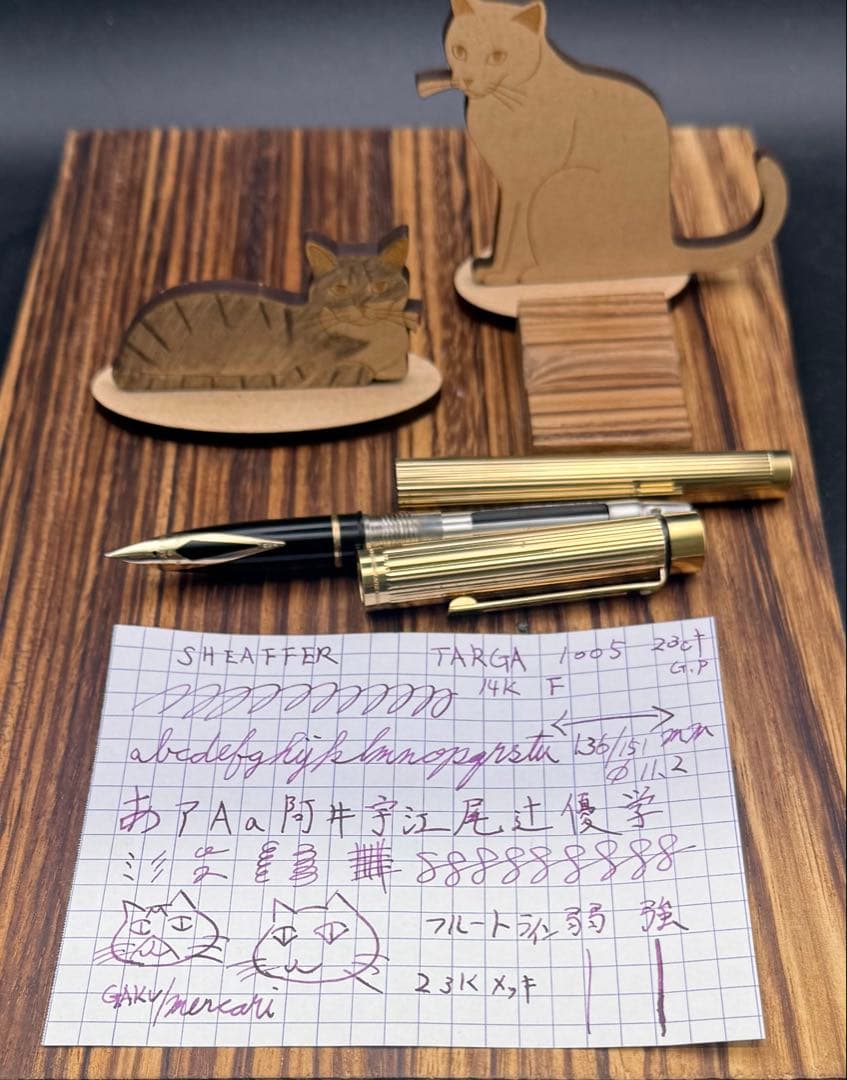 SHEAFFER TARGA 1005 23ct
G.P
14K F
abcdefghijklmnopqrstu 136/151 mm
φ 11.2
あ ア A a 阿 井 宇 江 尾 辻 優 学
フルートライン 弱 強
23K メッキ
GAKU/mercari